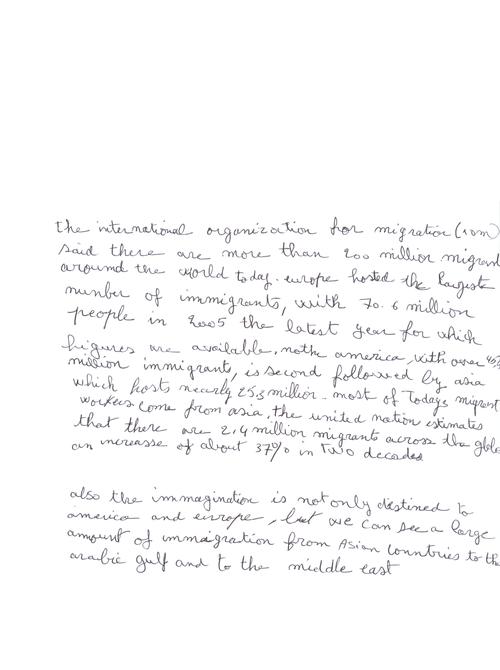 the international organization for migration (iom)
said there are more than 200 million migrant
around the world today. europe hosted the largest
number of immigrants, with 70.6 million
people in 2005 the latest year for which
figures are available. nothe america, with over 45%
million immigrants, is second followed by asia
which hosts nearly 25,3 million. most of todays migrant
workers come from asia, the united nation estimates
that there are 2,4 million migrants across the globe
an increasse of about 37% in two decades
also the immagination is not only destined to
america and europe, but we can see a large
amount of immaigration from Asian conntries to the
arabic gulf and to the middle east